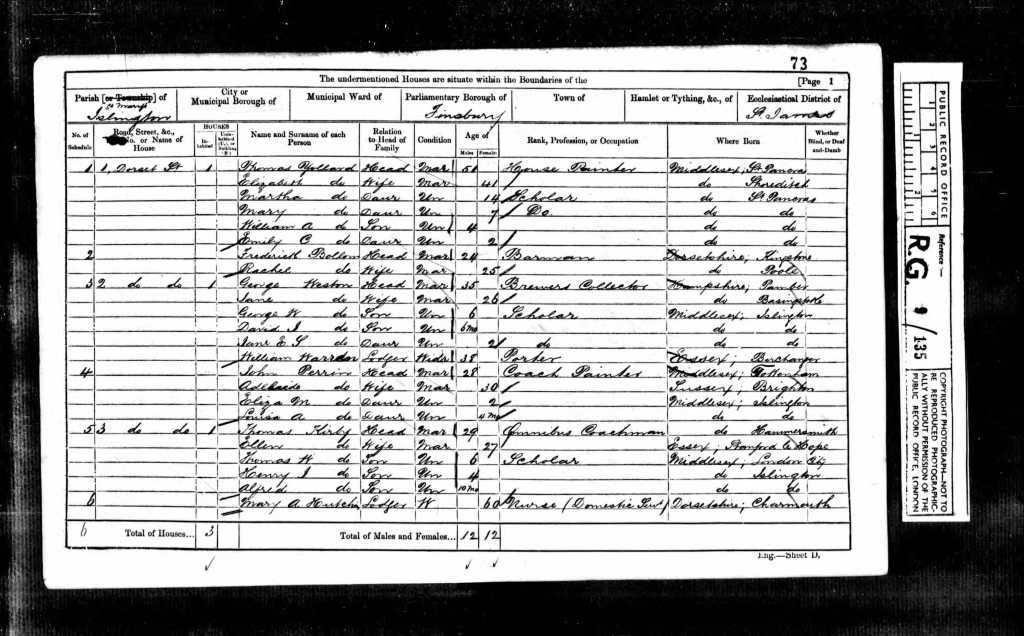 73
The undermentioned Houses are situate within the Boundaries of the [Page 1
Parish [or Township] of City or Municipal Borough of Municipal Ward of Parliamentary Borough of Town of Hamlet or Tything, &c., of Ecclesiastical District of
St Mary Islington Finsbury St James
No. of Schedule Road, Street, &c., No. or Name of House HOUSES Inhabited Name and Surname of each Person Relation to Head of Family Condition Age of Males Females Rank, Profession, or Occupation Where Born Whether Blind, or Deaf-and-Dumb
1 1, Dorset St 1 Thomas Head Mar 51 House Painter Middlesex; St Pancras
Elizabeth do Wife Mar 41 do Shoreditch
Martha do Daur Un 14 Scholar do St Pancras
Mary do Daur Un 7 Do do do
William A do Son Un 4 do do
Emily C do Daur Un 2 do do
2 Frederick Bollom Head Mar 24 Barman Dorsetshire; Kingstone
Rachel do Wife Mar 25 do Poole
3 2 do do 1 George Weston Head Mar 35 Brewers Collector Hampshire; Pamber
Jane do Wife Mar 26 do Basingstoke
George W do Son Un 6 Scholar Middlesex; Islington
David J do Son Un 6 mo do do
Jane E. S do Daur Un 2 do do do
William Lodger Widr 38 Porter Essex; Birchanger
4 John Perrin Head Mar 28 Coach Painter Middlesex; Tottenham
Adelaide do Wife Mar 30 Sussex; Brighton
Eliza M do Daur Un 2 Middlesex; Islington
Louisa A do Daur Un 4 mo do do
5 3 do do 1 Thomas Kirby Head Mar 29 Omnibus Coachman do Hammersmith
Ellen do Wife Mar 27 Essex; Stanford le Hope
Thomas W do Son Un 6 Scholar Middlesex; London City
Henry J do Son Un 4 do Islington
Alfred do Son Un 10 mo do do
6 Mary A Lodger W 60 Nurse (Domestic Servt) Dorsetshire; Charmouth
6 Total of Houses... 3 Total of Males and Females... 12 12
Eng.—Sheet D.
PUBLIC RECORD OFFICE
1 2 3 4 5 6
Reference:—
R.G. 9/135
COPYRIGHT PHOTOGRAPH—NOT TO
BE REPRODUCED PHOTOGRAPHIC-
ALLY WITHOUT PERMISSION OF THE
PUBLIC RECORD OFFICE, LONDON